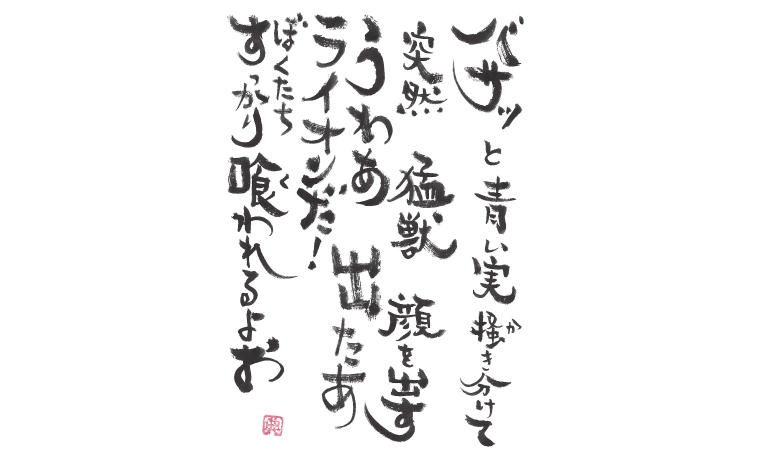 バサッと青い実掻き分けて
か
突然 猛獣 顔を出す
うわあ 出たあ
ライオンだ!
ぼくたち
すっかり喰われるよお
く